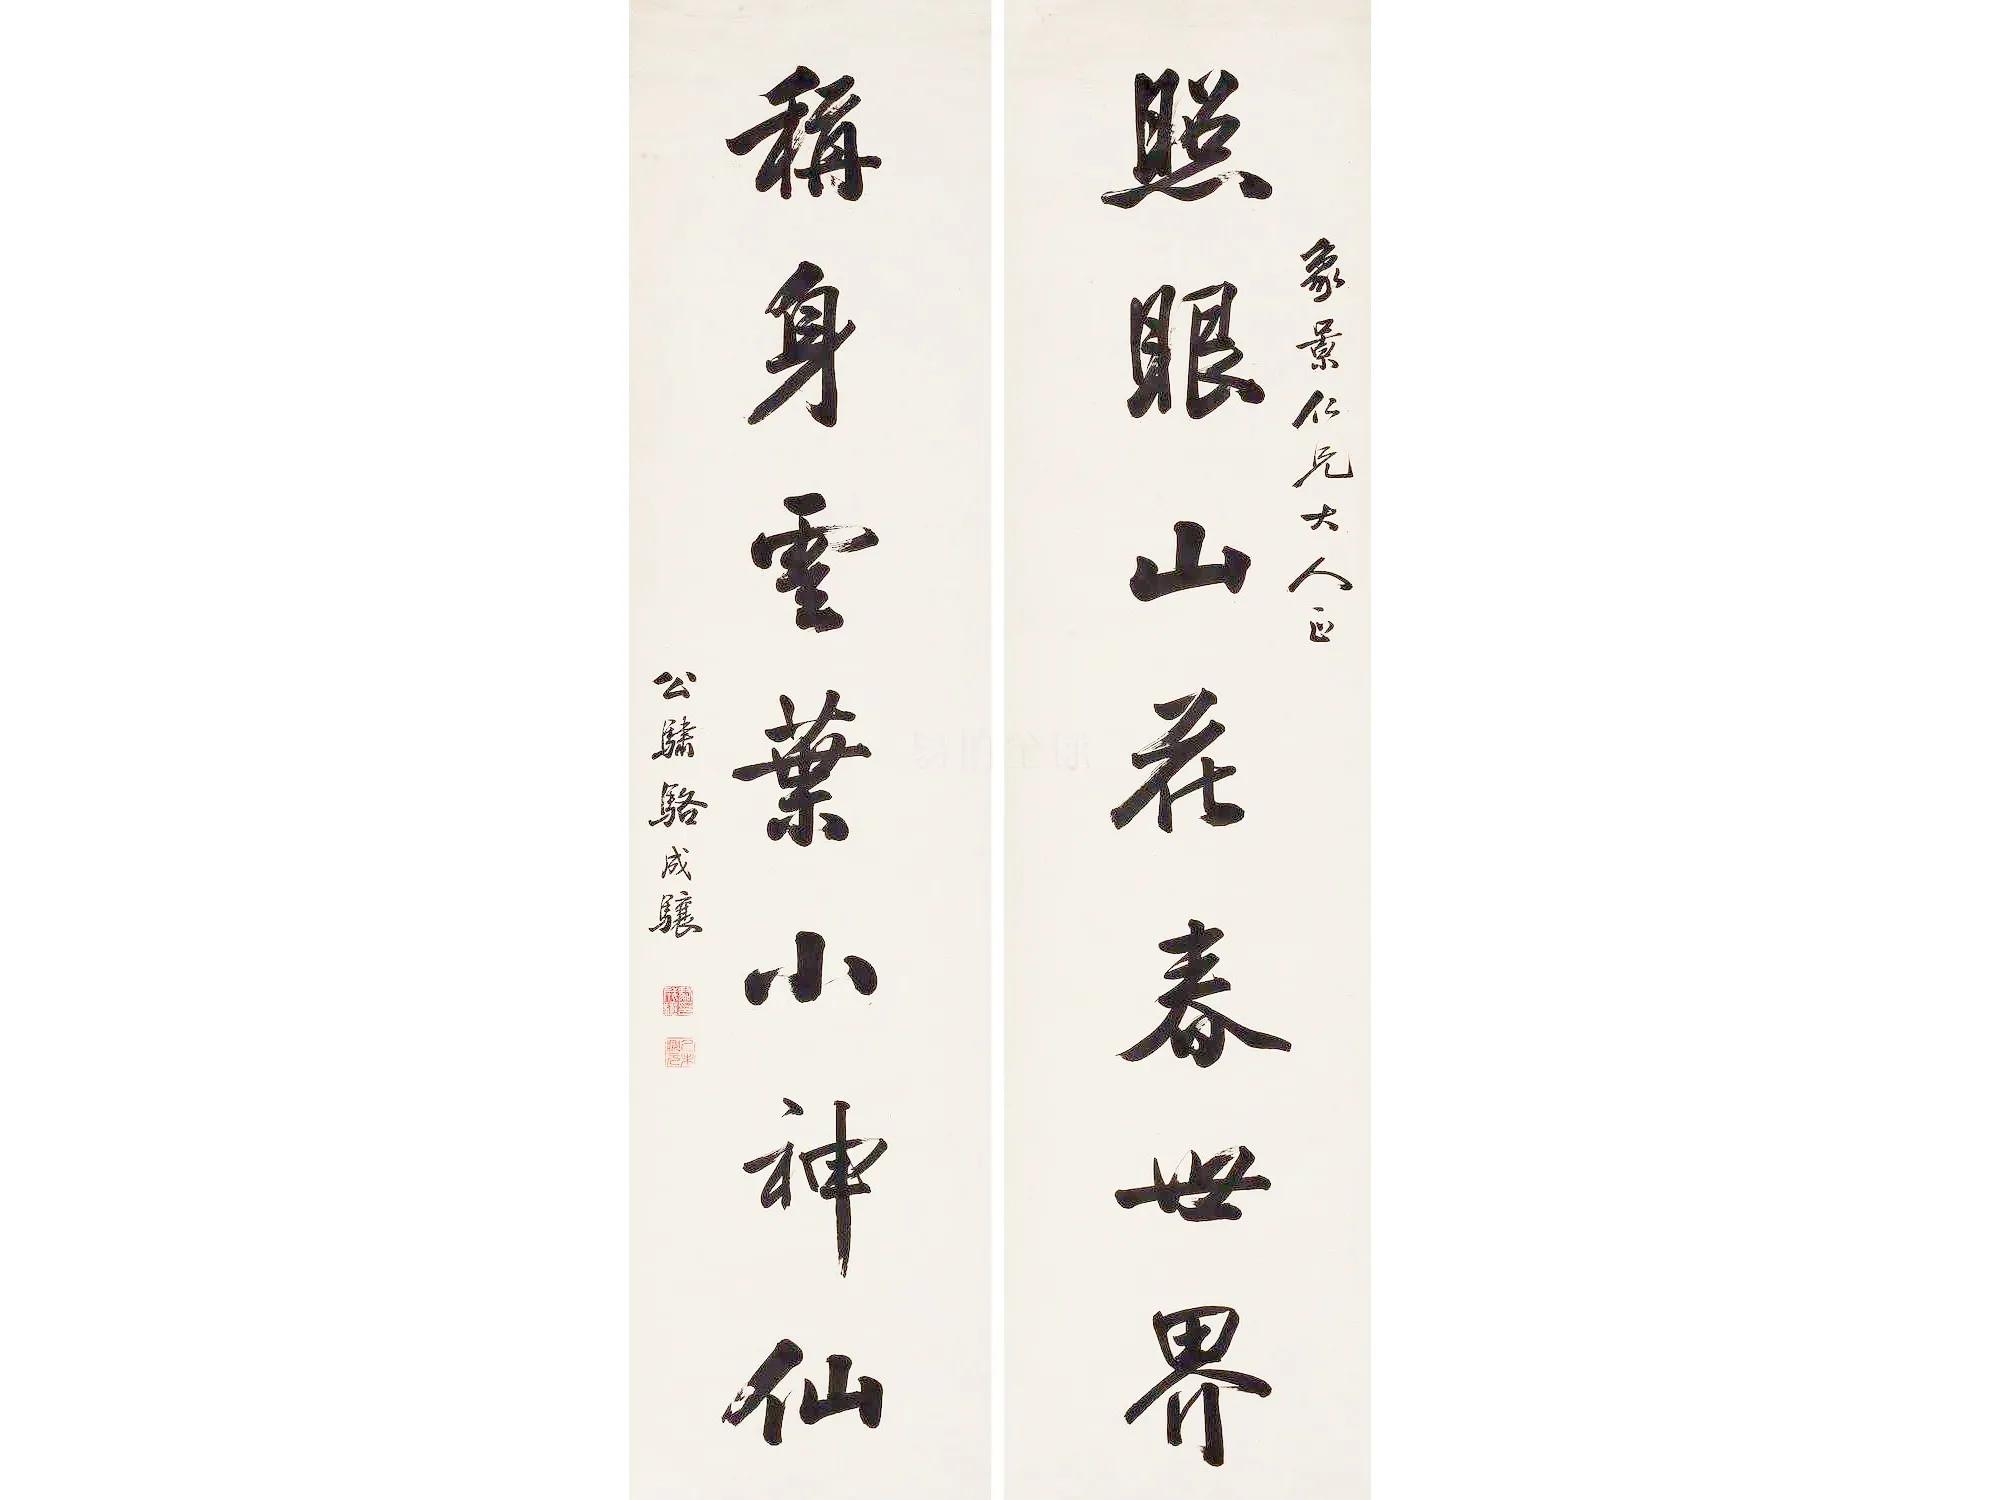 象景仁兄大人正
照眼山花春世界
稱身雲葉小神仙
公驌駱成驤